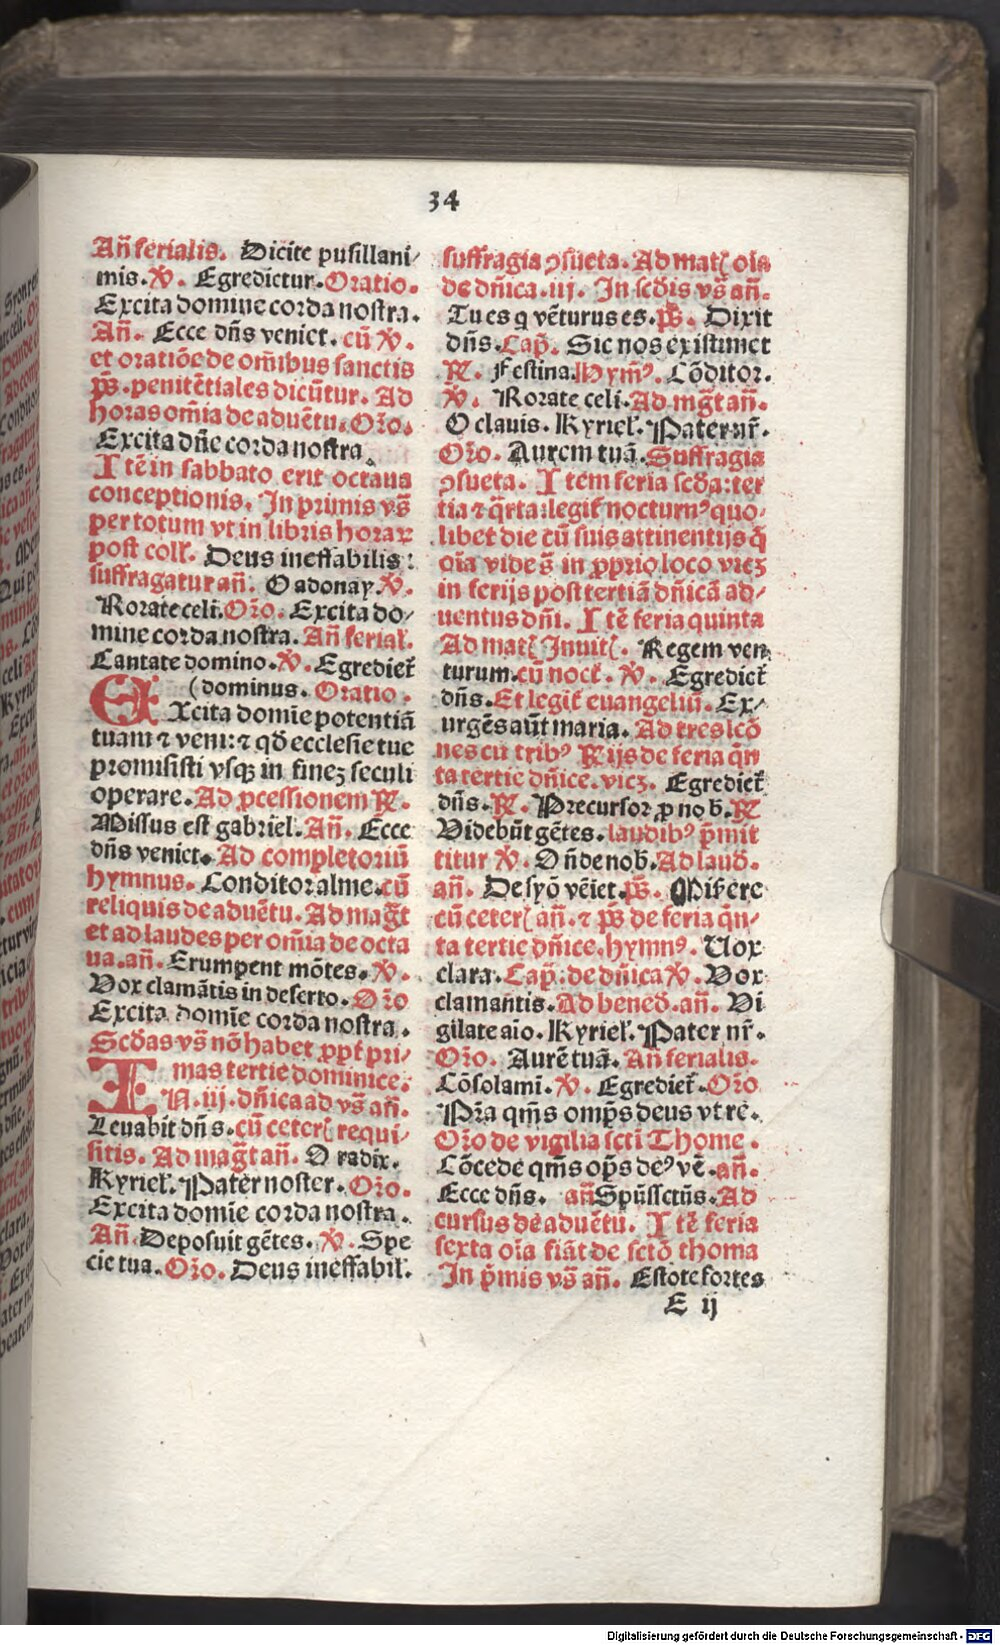 34
Añ ferialis. Dicite pusillani/
mis. ℣. Egredietur. Oratio.
Excita domine corda nostra.
Añ. Ecce dñs veniet. cũ ℣.
et oratiõe de om̃ibus sanctis
ps̃. penitẽtiales dicũtur. Ad
horas om̃ia de aduẽtu. Oꝛ̃o.
Excita dñe corda nostra.
Itẽ in sabbato erit octaua
conceptionis. In primis vs̃
per totum vt in libris horaꝝ
post coll̃. Deus ineffabilis:
suffragatur añ. O adonay. ℣.
Rorate celi. Oꝛ̃o. Excita do/
mine corda nostra. Añ ferial̃.
Cantate domino. ℣. Egrediet̃
(dominus. Oratio.
EXcita domĩe potentiã
tuam ⁊ veni: ⁊ qđ ecclesie tue
promisisti vsqꝫ in finez seculi
operare. Ad ꝓcessionem ℟.
Missus est gabriel. Añ. Ecce
dñs veniet. Ad completoriũ
hymnus. Conditor alme. cũ
reliquis de aduẽtu. Ad mag̃t
et ad laudes per om̃ia de octa
ua. añ. Erumpent mõtes. ℣.
Vox clamãtis in deserto. Oꝛ̃o
Excita domĩe corda nostra.
Scđas vs̃ nõ habet ꝓpt̃ pri/
mas tertie dominice.
IN .iij. dñica ad vs̃ añ.
Leuabit dñs. cũ ceteꝝ requi/
sitis. Ad mag̃t añ. O radix.
Kyriel̃. Pater noster. Oꝛ̃o.
Excita domĩe corda nostra.
Añ. Deposuit gẽtes. ℣. Spe
cie tua. Oꝛ̃o. Deus ineffabil̃.
suffragia ꝯsueta. Ad matꝝ oĩa
de dñica .iij. In scđis vs̃ añ.
Tu es q vẽturus es. ps̃. Dixit
dñs. Cap̃. Sic nos existimet
℟. Festina. Hym̃ꝰ. Cõditor.
℣. Rorate celi. Ad mg̃t añ.
O clauis. Kyriel̃. Pater nr̃.
Oꝛ̃o. Aurem tuã. Suffragia
ꝯsueta. Item feria scđa: ter
tia ⁊ q̃rta: legit̃ nocturnꝰ quo/
libet die cũ suis attinentijs q̃
oĩa vide s̃ in ꝓprio loco viez
in ferijs post tertiã dñicã ad/
uentus dñi. Itẽ feria quinta
Ad mat̃ Inuit̃. Regem ven
turum. cũ noct̃. ℣. Egrediet̃
dñs. Et legit̃ euangeliũ. Ex/
urgẽs aũt maria. Ad tres lcõ
nes cũ tribꝰ ℟ijs de feria q̃n
ta tertie dñice. viez. Egrediet̃
dñs. ℟. Precursor ꝓ no b̃. ℟
Videbũt gẽtes. laudibꝰ p̃mit
titur ℣. Oñde nob̃. Ad lauđ.
añ. De syõ vẽiet. ps̃. Miẜere
cũ ceteꝝ añ. ⁊ ps̃ de feria q̃n/
ta tertie dñice. hymnꝰ. Uox
clara. Cap̃: de dñica ℣. Vox
clamantis. Ad beneđ. añ. Vi
gilate aĩo. Kyriel̃. Pater nr̃.
Oꝛ̃o. Aurẽ tuã. Añ ferialis.
Cõsolamĩ. ℣. Egrediet̃. Oꝛ̃o
Pr̃a qm̃s omp̃s deus vt re.
Oꝛ̃o de vigilia scti Thome.
Cõcede qm̃s op̃s deꝰ vẽ. añ.
Ecce dñs. añ Sp̃ussctũs. Ad
cursus de aduẽtu. Itẽ feria
sexta oĩa fiãt de sctõ thoma
In p̃mis vs̃ añ. Estote fortes
E ij
Digitalisierung gefördert durch die Deutsche Forschungsgemeinschaft - DFG